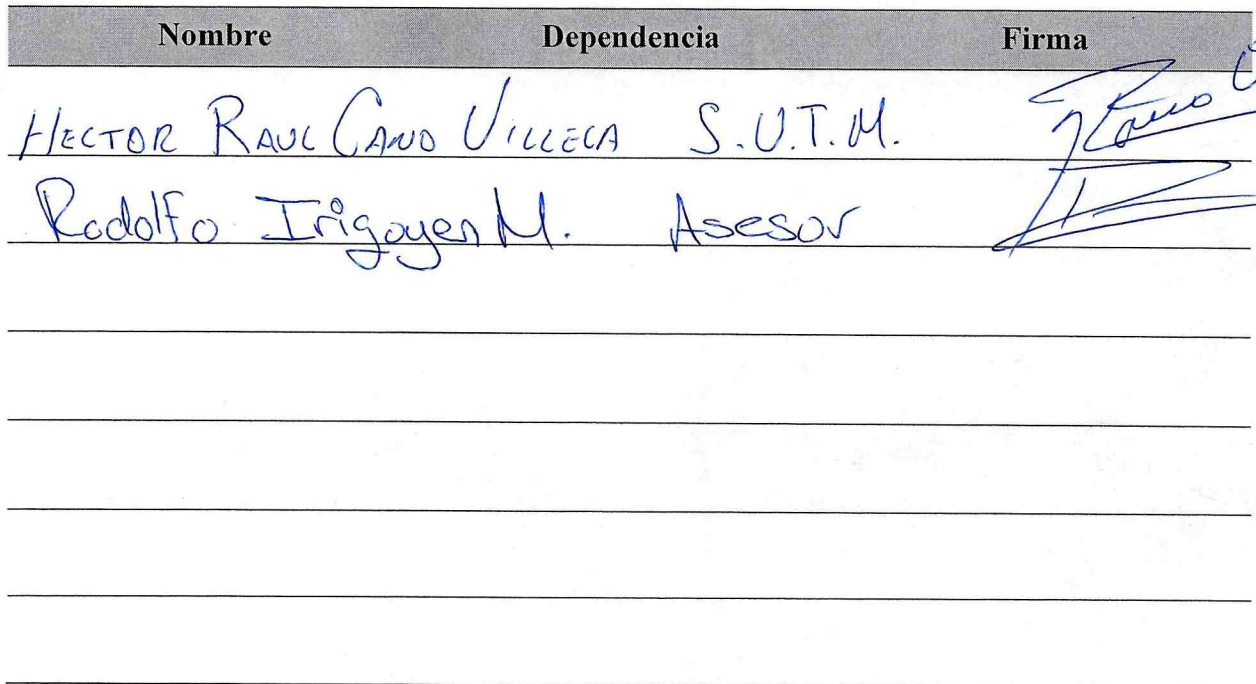 Nombre Dependencia Firma
HECTOR RAUL CANO VILLEGA S.U.T.M.
Rodolfo Irigoyen M. Asesor